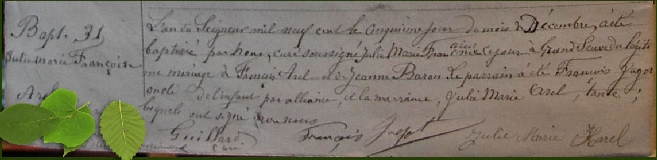 Bapt. 31
Julie Marie Françoise
Arel
L'an du Seigneur mil neuf cent le cinquième jour du mois de Décembre, a été
baptisée par nous, curé soussigné Julie Marie Françoise née ce jour à Grand Sauve du légiti
me mariage de Arel et de Jeanne Baron. Le parrain a été François Jagot
oncle de l'enfant par alliance, et la marraine, Julie Marie Arel, tante,
lesquels ont signé avec nous
Guillard François Jagot Julie Marie Harel
curé